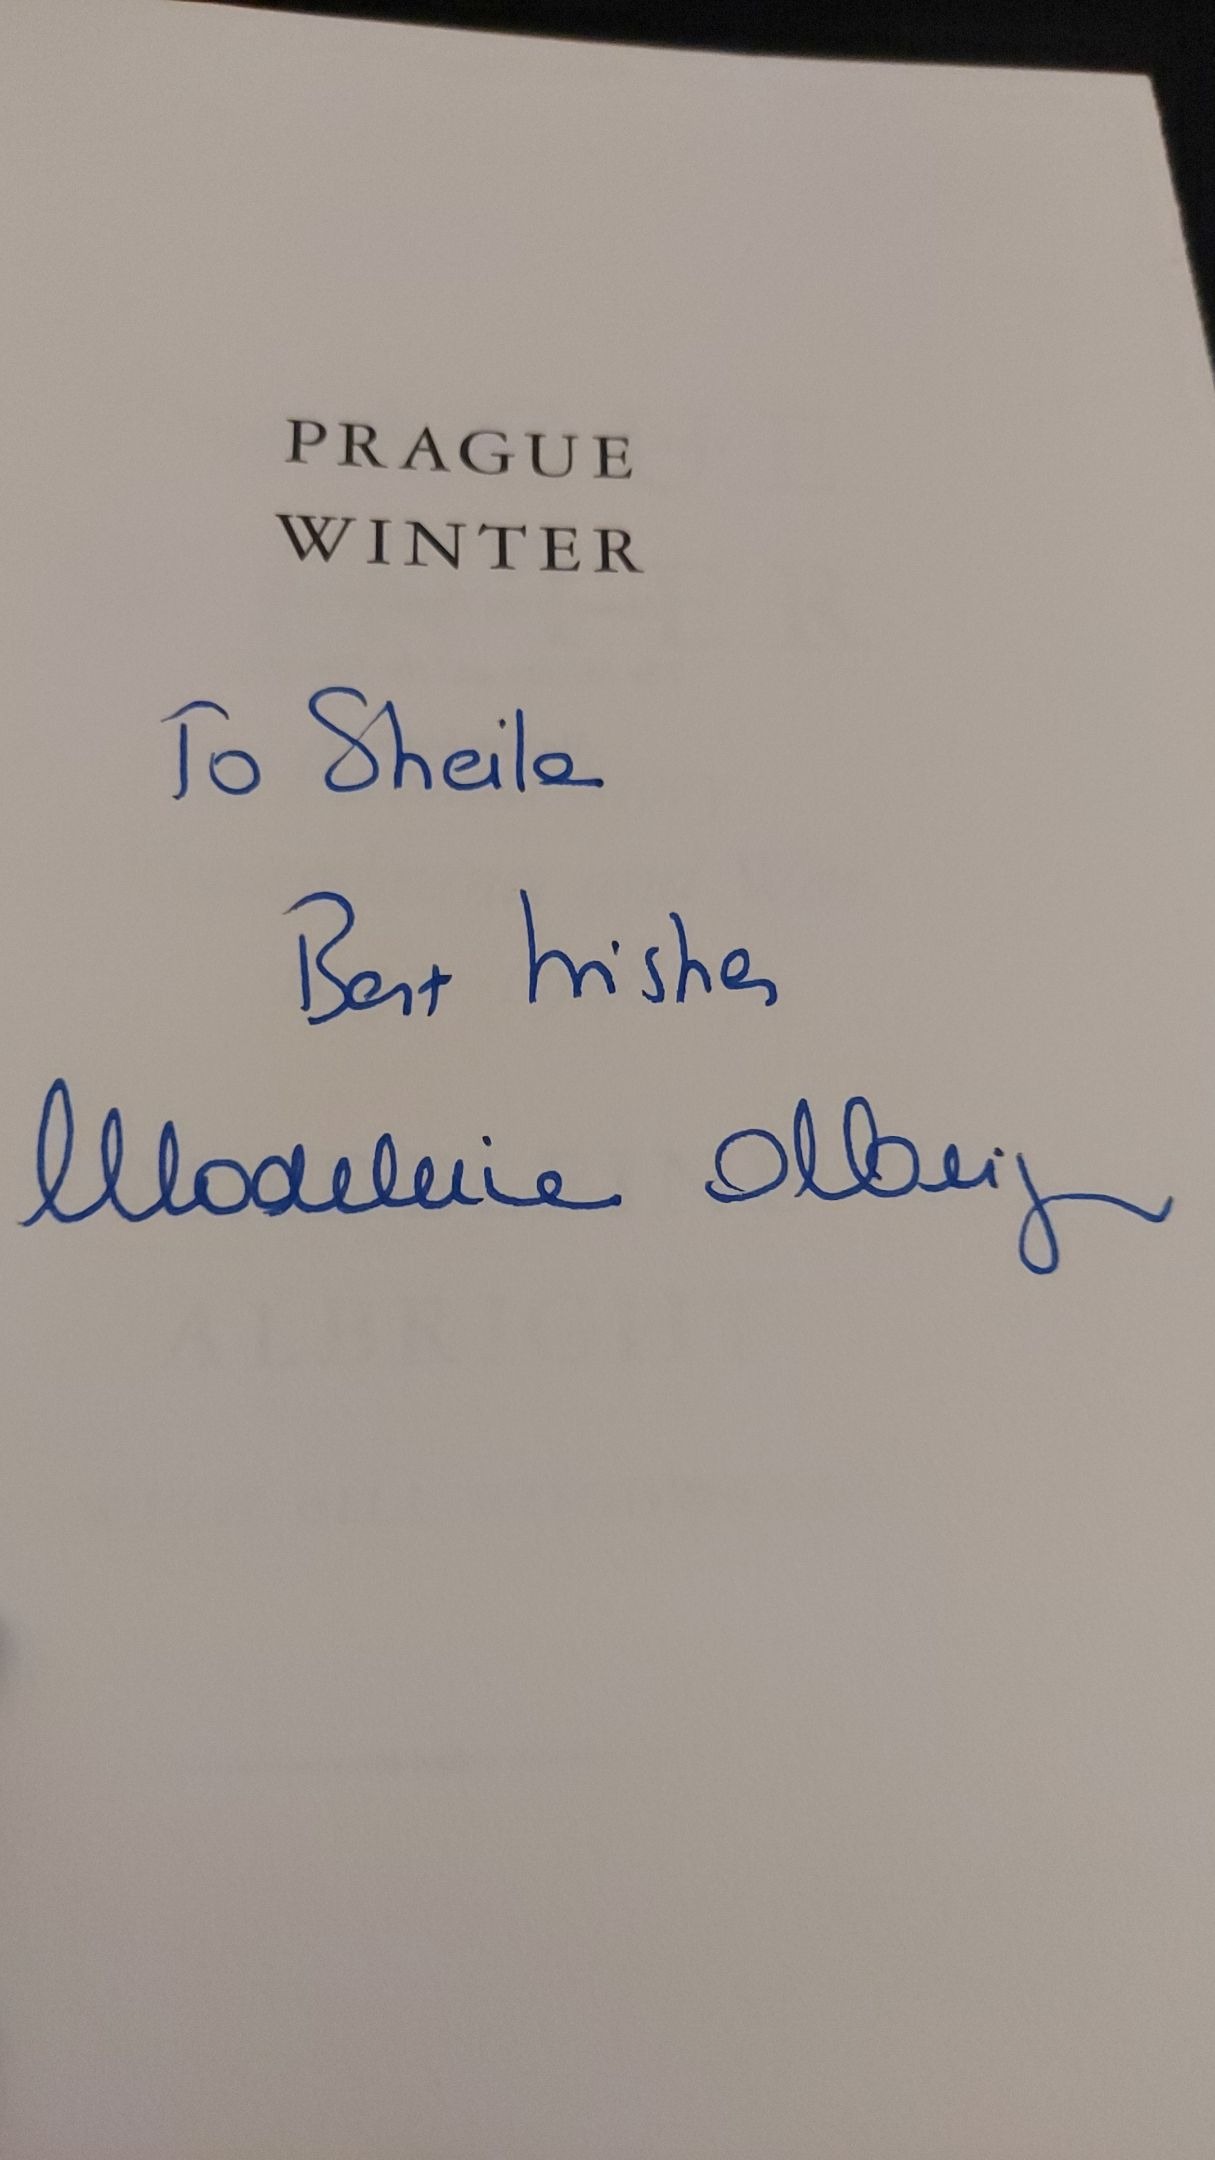 PRAGUE
WINTER
To Sheila
Best Wishes
Madeleine Albright